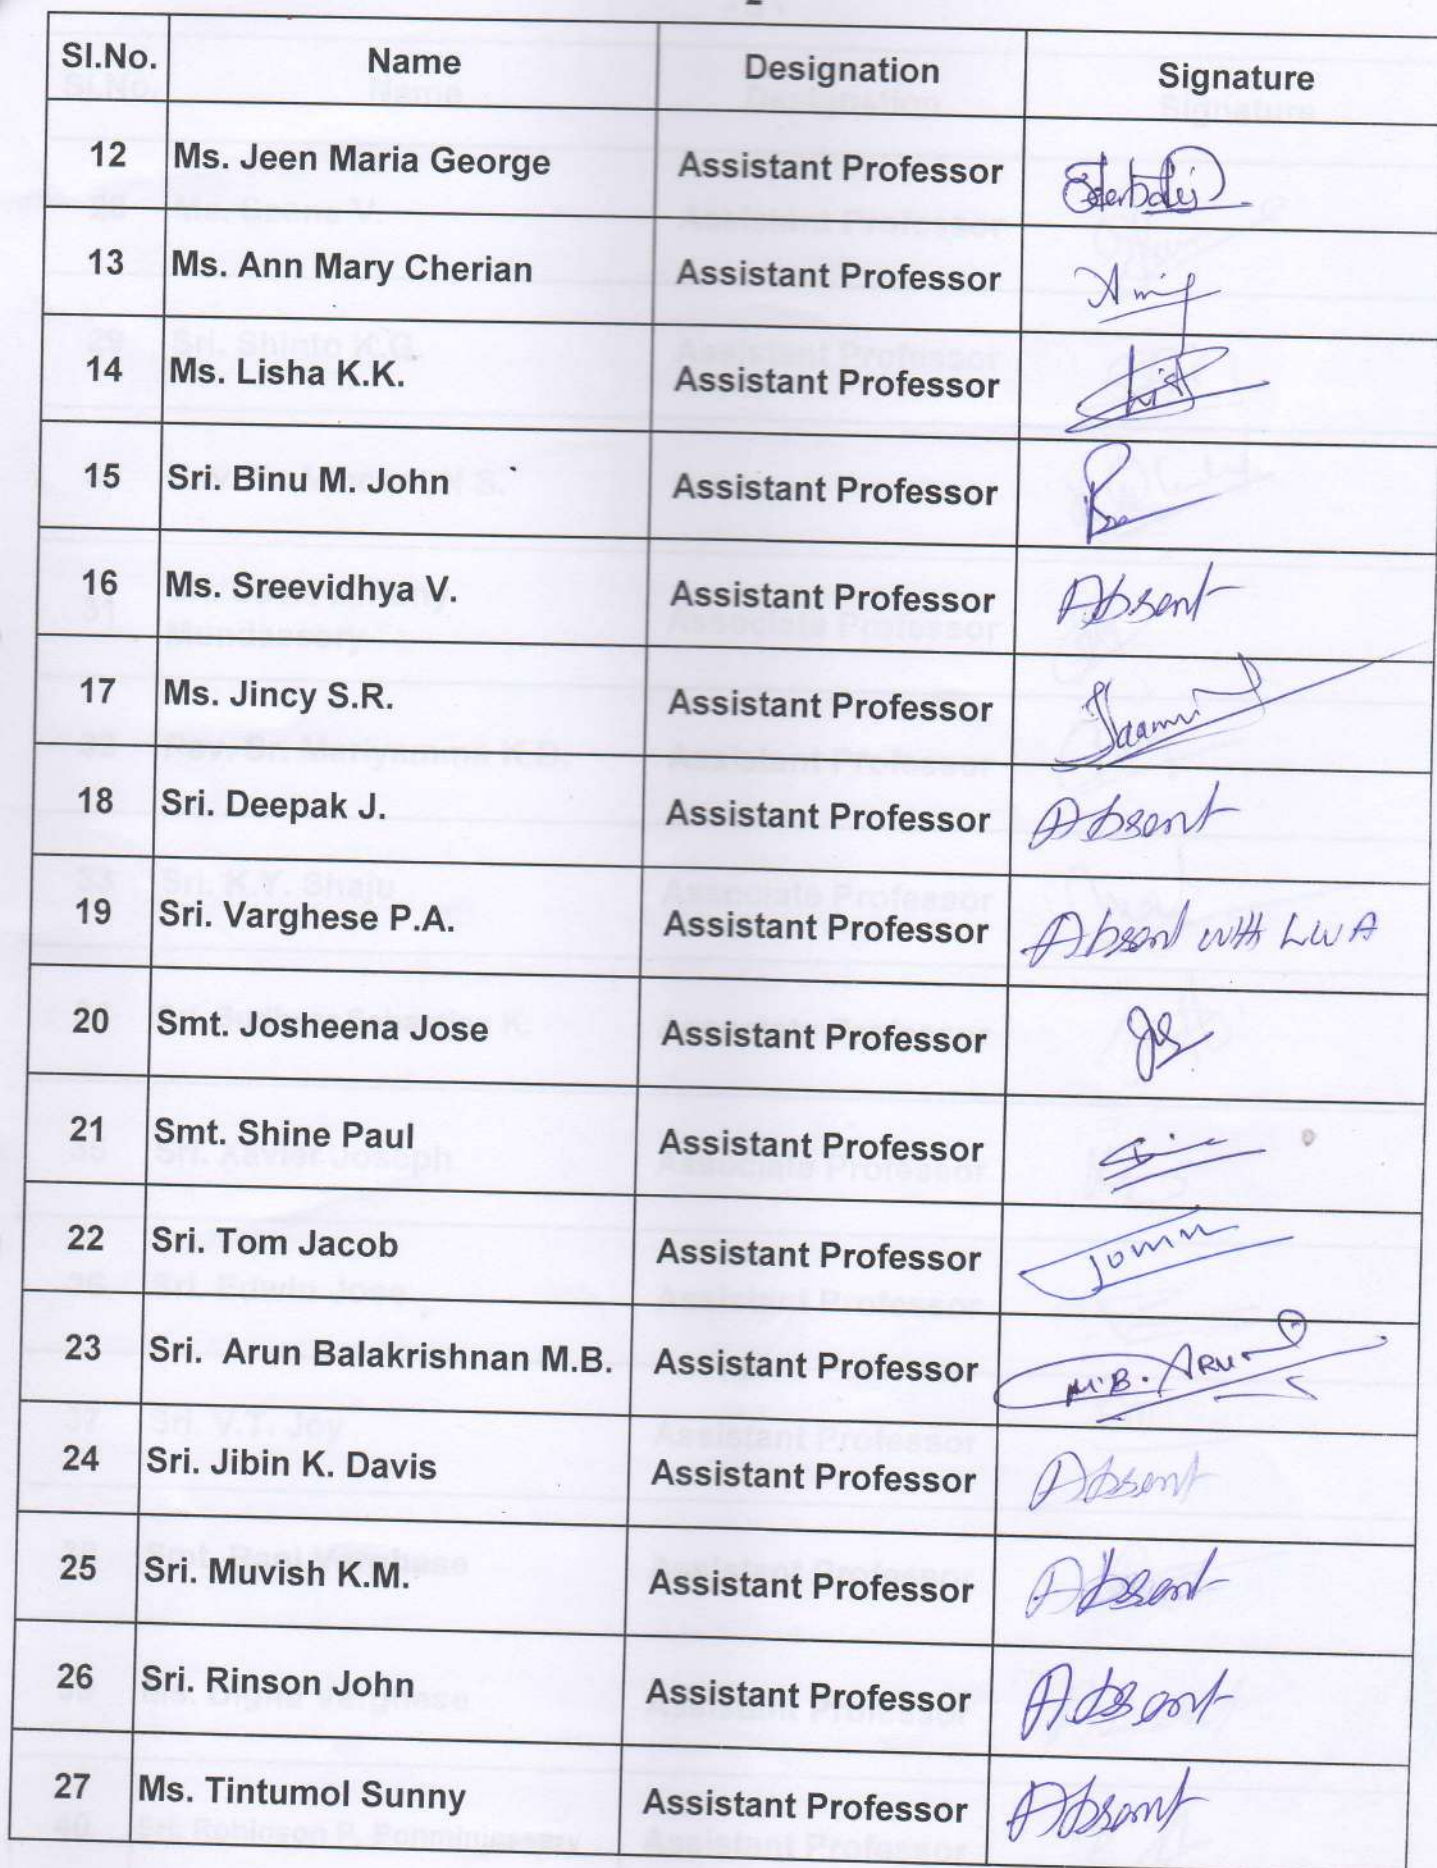 Sl.No. Name Designation Signature
12 Ms. Jeen Maria George Assistant Professor
13 Ms. Ann Mary Cherian Assistant Professor
14 Ms. Lisha K.K. Assistant Professor
15 Sri. Binu M. John Assistant Professor
16 Ms. Sreevidhya V. Assistant Professor Absent
17 Ms. Jincy S.R. Assistant Professor
18 Sri. Deepak J. Assistant Professor Absent
19 Sri. Varghese P.A. Assistant Professor Absent with LWA
20 Smt. Josheena Jose Assistant Professor
21 Smt. Shine Paul Assistant Professor
22 Sri. Tom Jacob Assistant Professor
23 Sri. Arun Balakrishnan M.B. Assistant Professor M.B. ARUN
24 Sri. Jibin K. Davis Assistant Professor Absent
25 Sri. Muvish K.M. Assistant Professor Absent
26 Sri. Rinson John Assistant Professor Absent
27 Ms. Tintumol Sunny Assistant Professor Absent